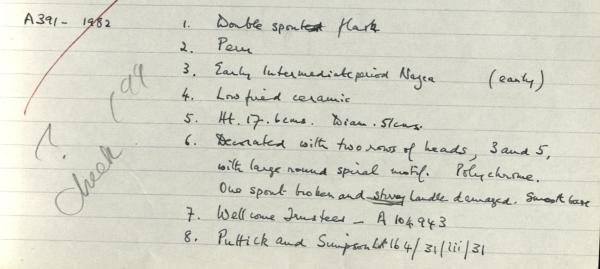 A391 - 1982
1. Double spouted flask
2. Peru
3. Early Intermediate period Nazca (early)
4. Low fired ceramic
5. Ht. 17.6cms. Diam. 51cms.
6. Decorated with two rows of heads, 3 and 5,
with large round spiral motif. Polychrome.
One spout broken and handle damaged. Smooth base
7. Wellcome Trustees - A 104943
8. Puttick and Simpson Lot 164/31/iii/31
? check